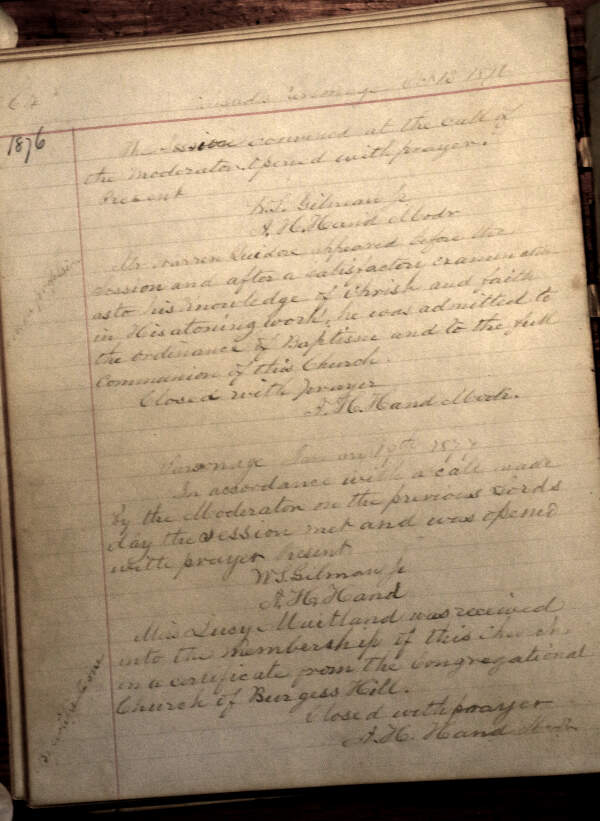 64
Oct 13 1876
1876
The Session convened at the call of
the moderator. Opened with prayer.
Present
W. S. Gilman Jr
A. H. Hand Modr
Mr Warren appeared before the
session and after a satisfactory examination
as to his knowledge of Christ and faith
in His atoning work, he was admitted to
the ordinance of Baptism and to the full
communion of this Church.
Closed with Prayer
A. H. Hand Modr.
Parsonage Jan 1877
In accordance with a call made
by the Moderator on the previous Lords
day the session met and was opened
with prayer Present
W. S. Gilman Jr
A. H. Hand
Miss Lucy Maitland was received
into the membership of this Church
on a certificate from the Congregational
Church of Burgess Hill.
Closed with prayer
A. H. Hand Modr